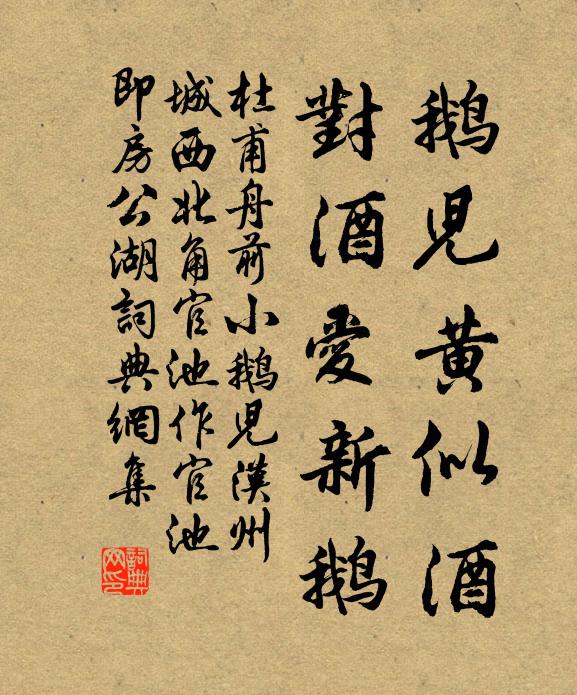 鵝兒黃似酒
對酒愛新鵝
杜甫舟前小鵝兒漢州
城西北角官池作官池
即房公湖詞典網集
詞典网印